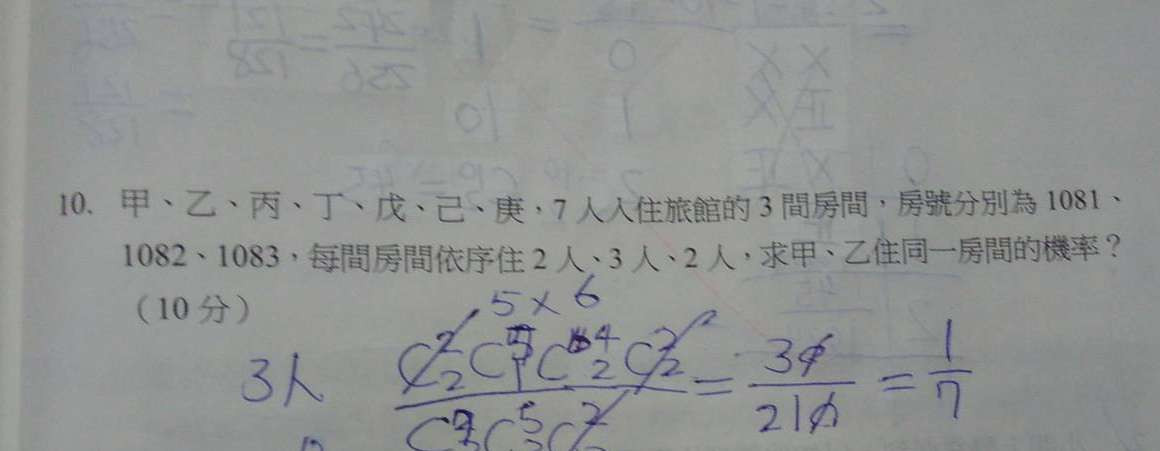 10. 甲、乙、丙、丁、戊、己、庚，7 人入住旅館的 3 間房間，房號分別為 1081、
1082、1083，每間房間依序住 2 人、3 人、2 人，求甲、乙住同一房間的機率？
（10 分）
5 × 6
3人 = 30/210 = 1/7